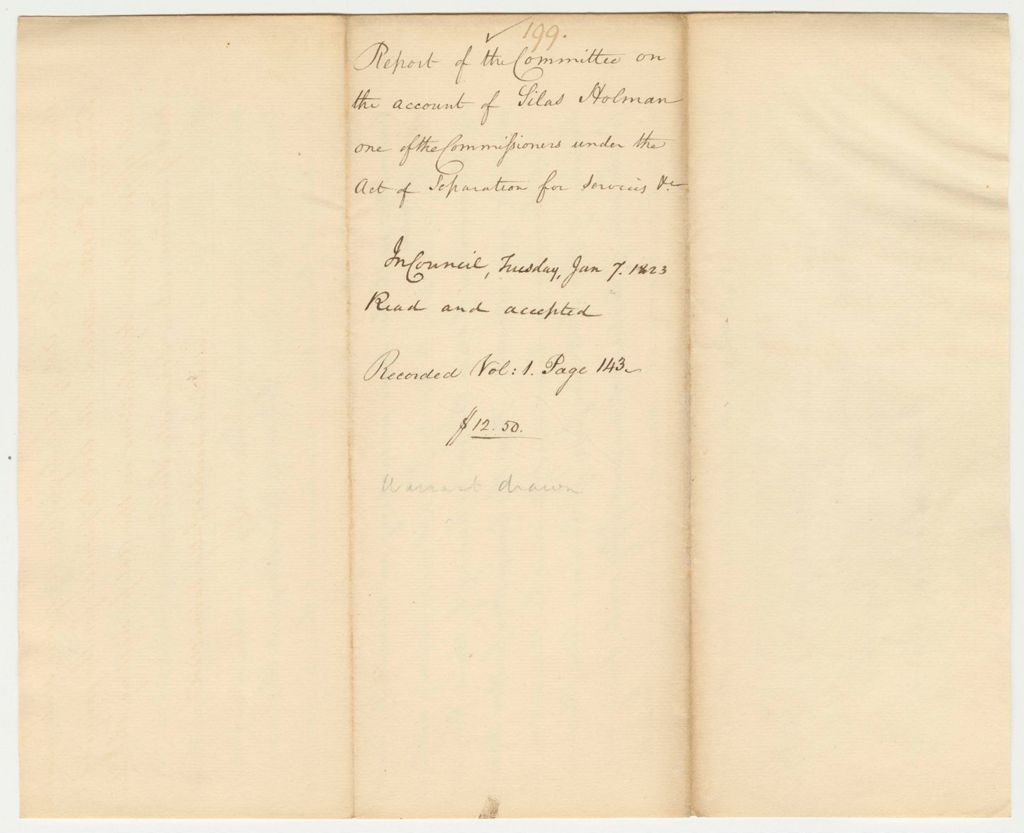 ✓ 199.
Report of the Committee on
the account of Silas Holman
one of the Commissioners under the
Act of Separation for services &c
In Council, Tuesday, Jan 7. 1823
Read and accepted
Recorded Vol: 1. Page 143
$12.50.
Warrant drawn